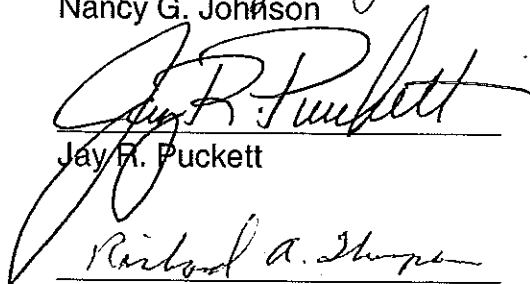 Nancy G. Johnson
Jay R. Puckett
Jay R. Puckett
Richard A. Thompson